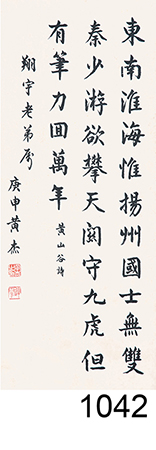 東南淮海惟揚州國士無雙
秦少游欲攀天關守九虎但
有筆力回萬年 黃山谷詩
翔宇老弟屬
庚申黃杰
1042